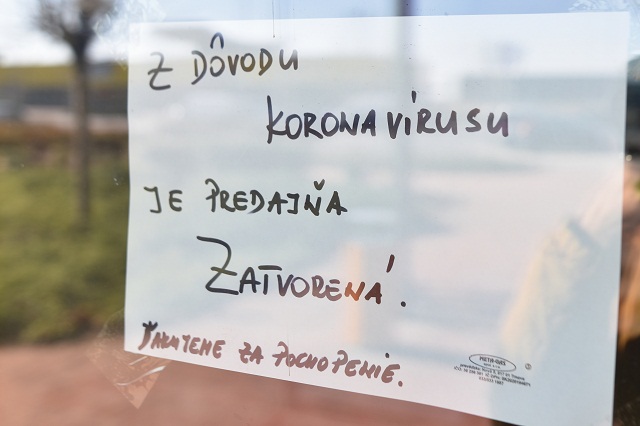 Z DÔVODU
KORONAVÍRUSU
JE PREDAJŇA
ZATVORENÁ.
ĎAKUJEME ZA POCHOPENIE.